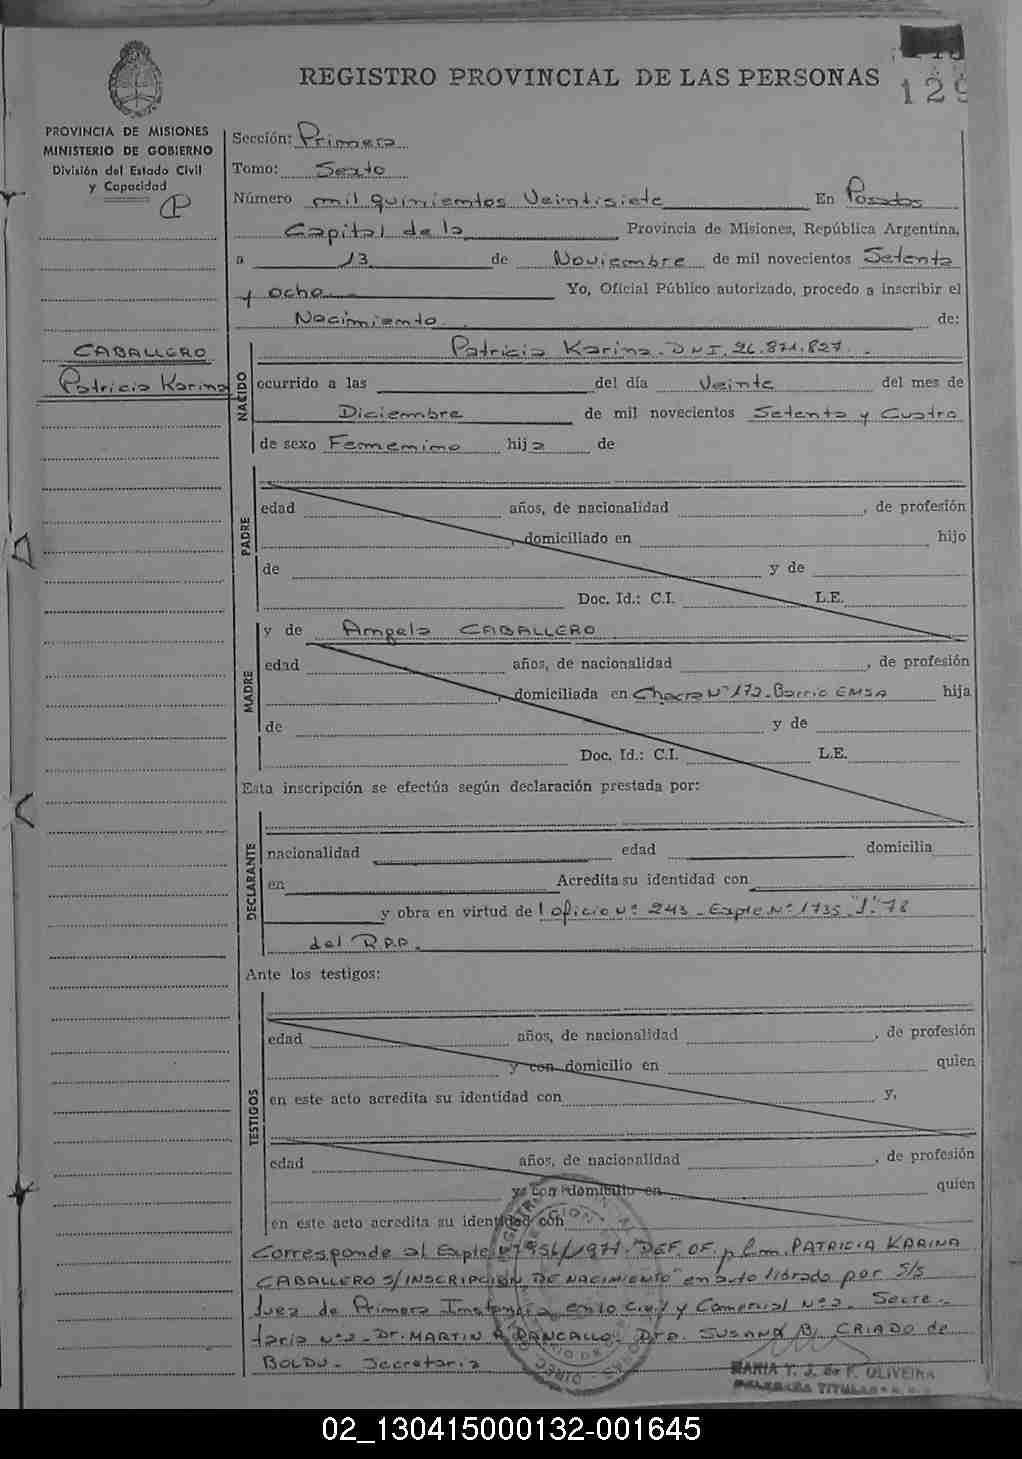 REGISTRO PROVINCIAL DE LAS PERSONAS
129
PROVINCIA DE MISIONES
MINISTERIO DE GOBIERNO
División del Estado Civil
y Capacidad
P
CABALLERO
Patricia Karina
Sección: Primera
Tomo: Sexto
Número mil quinientos Veintisiete En Posadas
Capital de la Provincia de Misiones, República Argentina,
a 13 de Noviembre de mil novecientos Setenta
y ocho Yo, Oficial Público autorizado, procedo a inscribir el
Nacimiento de:
NACIDO
Patricia Karina. DNI. 26.871.827.
ocurrido a las del día Veinte del mes de
Diciembre de mil novecientos Setenta y Cuatro
de sexo Femenino hija de
PADRE
edad años, de nacionalidad , de profesión
, domiciliado en hijo
de y de
Doc. Id.: C.I. L.E.
MADRE
y de Angela CABALLERO
edad años, de nacionalidad , de profesión
, domiciliada en Chacra Nº 172 - Barrio EMSA hija
de y de
Doc. Id.: C.I. L.E.
Esta inscripción se efectúa según declaración prestada por:
DECLARANTE
nacionalidad edad domicilia
en Acredita su identidad con
y obra en virtud del oficio Nº 243 - Expte Nº 1735 "J" 78
del R.P.P.
Ante los testigos:
TESTIGOS
edad años, de nacionalidad , de profesión
y con domicilio en quien
en este acto acredita su identidad con y,
edad años, de nacionalidad , de profesión
y con domicilio en quien
en este acto acredita su identidad con
Corresponde al Expte "DEF. OF. p/ PATRICIA KARINA
CABALLERO S/INSCRIPCION DE NACIMIENTO" en auto librado por S/S
Juez de Primera Instancia en lo Civil y Comercial Nº 2. Secre-
taría Nº 2 - Dr. MARTIN A. Dra. SUSANA B. CRIADO de
BOLDU - Secretaria
MARIA T. J. de F. OLIVEIRA
DELEGADA TITULAR
02_130415000132-001645